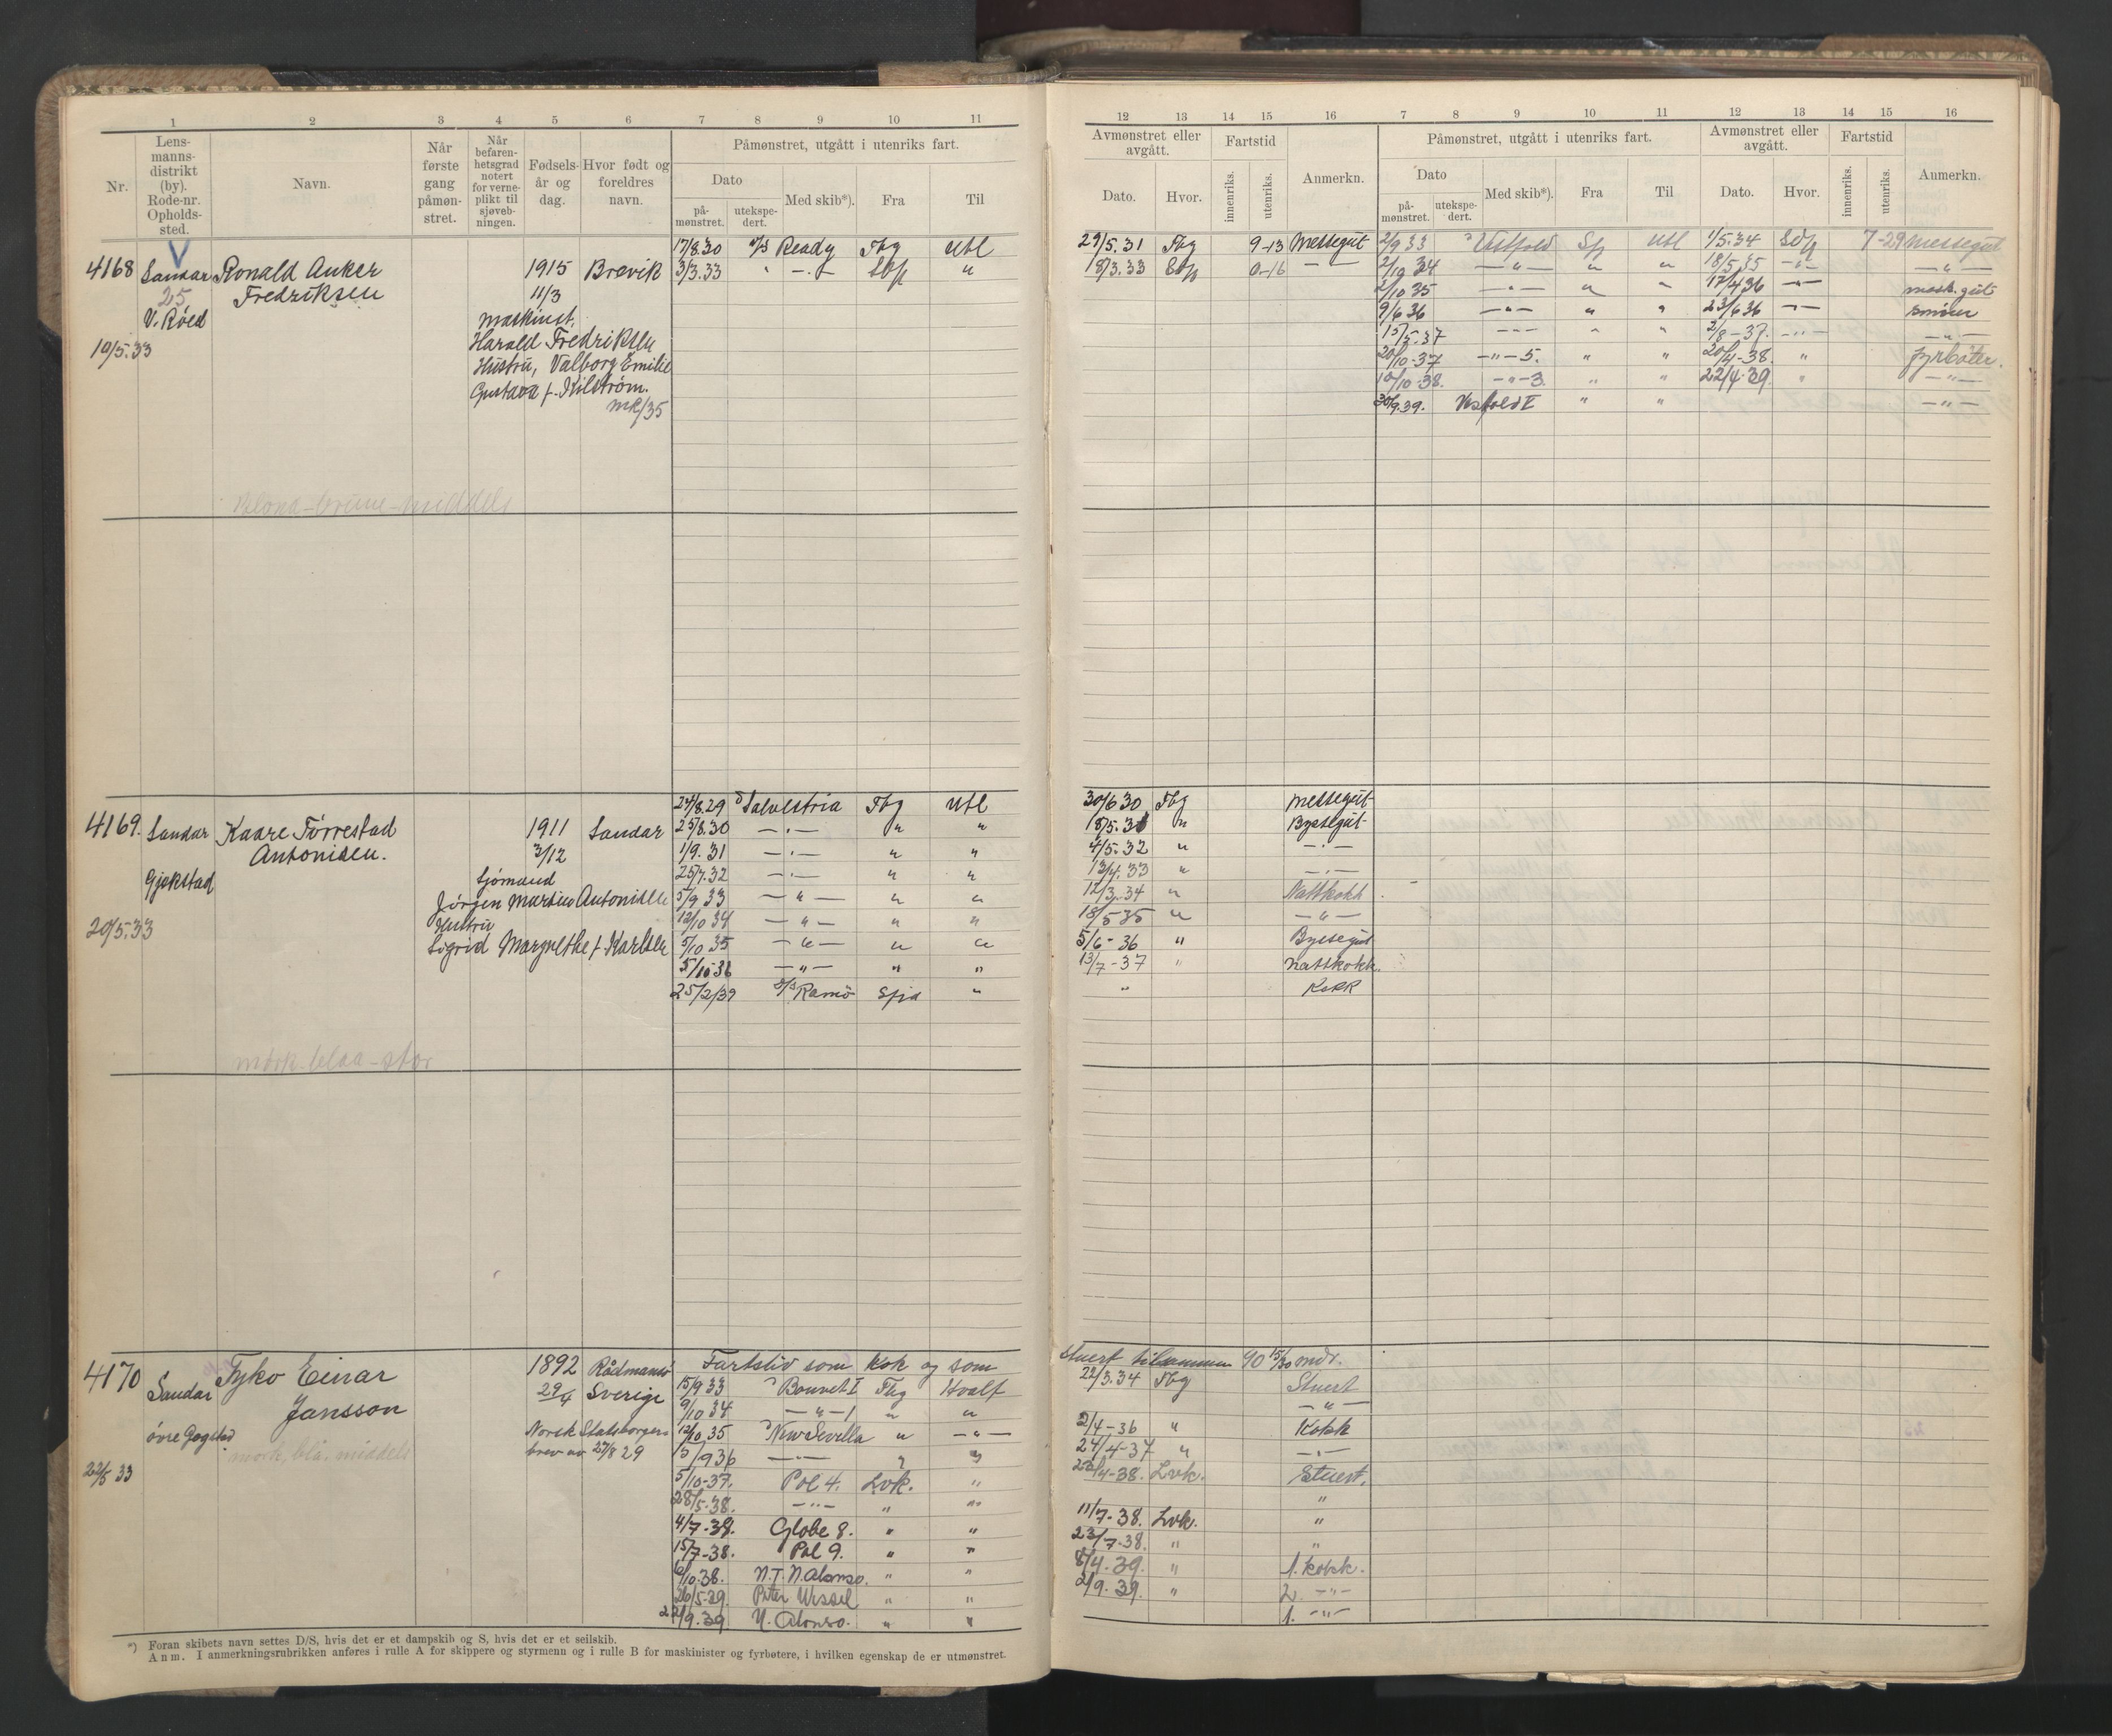 1 2 3 4 5 6 7 8 9 10 11
Nr. Lensmannsdistrikt (by). Rode-nr. Oppholdssted. Navn. Når første gang påmønstret. Når befarenhetsgrad notert for verneplikt til sjøvebningen. Fødselsår og dag. Hvor født og foreldres navn. Påmønstret, utgått i utenriks fart.
Dato påmønstret. utekspedert. Med skib*). Fra Til
V
4168 Sandar Ronald Anker 1915 Brevik 17/8.30 Ready Tbg Utl
25 Fredriksen 11/3 3/3.33 " - . - "
V. Röed maskinist.
10/5.33 Harald Fredriksen
Hustru, Valborg Emilie
Gustava f. Kilström.
mk/35
Blond-brune-middels
4169. Sandar Kaare Törrestad 1911 Sandar 24/8.29 Salvestria Tbg Utl
Antonisen. 3/12 25/8.30 - . - " "
1/9.31 - . - " "
Gjekstad Sjömand 25/7.32 - . - " "
Jörgen Martin Antonisen 5/9 33 - " - " "
20/5.33 Hustru 12/10 34 - " - " "
Sigrid Margrethe f. Karlsen 5/10 35 - " - " "
5/10-36 - " - " "
25/2/39 Ramö "
mörk-blaa-stor
4170 Tyko Einar 1892 Rådmansö Fartstid som kok og som
Sandar Jansson 29/4 Sverige 15/9 33 Bouvet I Tbg Hvalf
9/10 34 - " - 1 " "
övre Gogstad Norsk Statsborger- 12/10 35 New Sevilla " - " -
mörk, blå, middels brev av 27/8 29 5/9 36 - " - " "
22/5 33 5/10-37. Pol 4. Lvk. "
28/5-38. - " - " "
4/7-38. Globe 8. " "
15/7-38. Pol 9. " "
6/10.38. N.T. N. Alonso. " "
26/5-39. Peter Wessel " "
22/9.39 N. Alonso. " "
*) Foran skibets navn settes D/S, hvis det er et dampskib og S, hvis det er et seilskib.
Anm. I anmerkningsrubrikken anføres i rulle A for skippere og styrmenn og i rulle B for maskinister og fyrbøtere, i hvilken egenskap de er utmønstret.
12 13 14 15 16 7 8 9 10 11 12 13 14 15 16
Avmønstret eller avgått. Fartstid Anmerkn. Påmønstret, utgått i utenriks fart. Avmønstret eller avgått. Fartstid Anmerkn.
Dato. Hvor. innenriks. utenriks. Dato påmønstret. utekspedert. Med skib*). Fra Til Dato. Hvor. innenriks. utenriks.
29/5.31 Tbg 9-13 Messegut 2/9 33 Vestfold Utl 1/5.34 7-29 messegut
18/3.33 0-16 - - 2/10 34 - " - " " 18/5 35 - " - - " -
2/10 35 - " - " " 17/4 36 - " - mask.gut
9/6 36 - " - " " 23/6 36 - " - smörer
15/5-37 - " - " " 2/8-37. - " - - " -
20/10-37 - " - 5. " " 20/4-38. " fyrböter.
10/10-38. - " - 3. " " 22/4.39. " - " -
30/9.39. Vestfold I " " - " -
30/6 30 Tbg Messegut
18/5.31 " Byssegut
4/5.32 " - . -
13/4.33 " - . -
12/3.34 " Nattkokk
18/5 35 " - " -
5/6-36 " Byssegut
13/7-37 " nattkokk.
" Kokk
Stuert tilsammen 90 15/30 mdr.
22/3.34 Tbg Stuert
- " -
2/4-36 " Kokk
24/4-37 " - . -
23/4-38. Lvk. Stuert.
"
11/7-38. Lvk. "
23/7-38. " "
8/4.39. " 1. kokk.
2/9.39. " 2. - " -
1. - " -